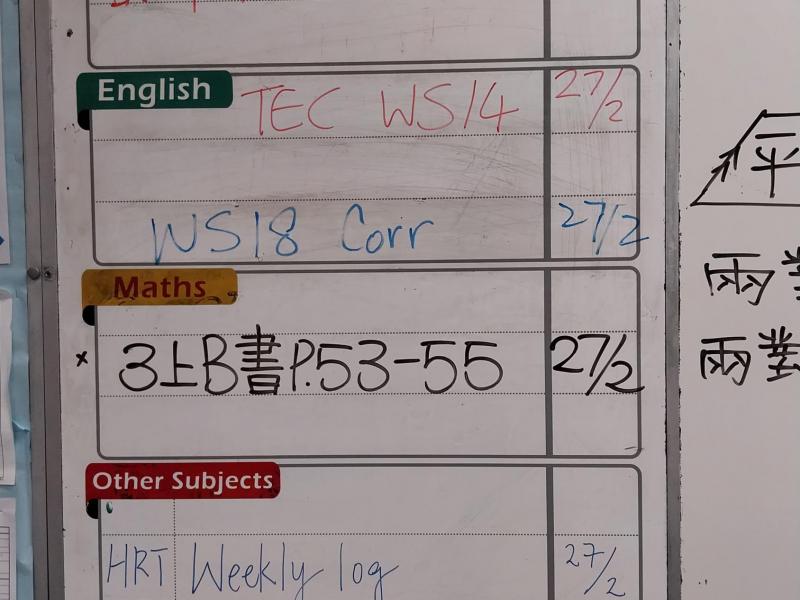 English
TEC WS14 27/2
WS18 Corr 27/2
Maths
x 3上B書P.53-55 27/2
Other Subjects
HRT Weekly log 27/2
平
兩
兩對